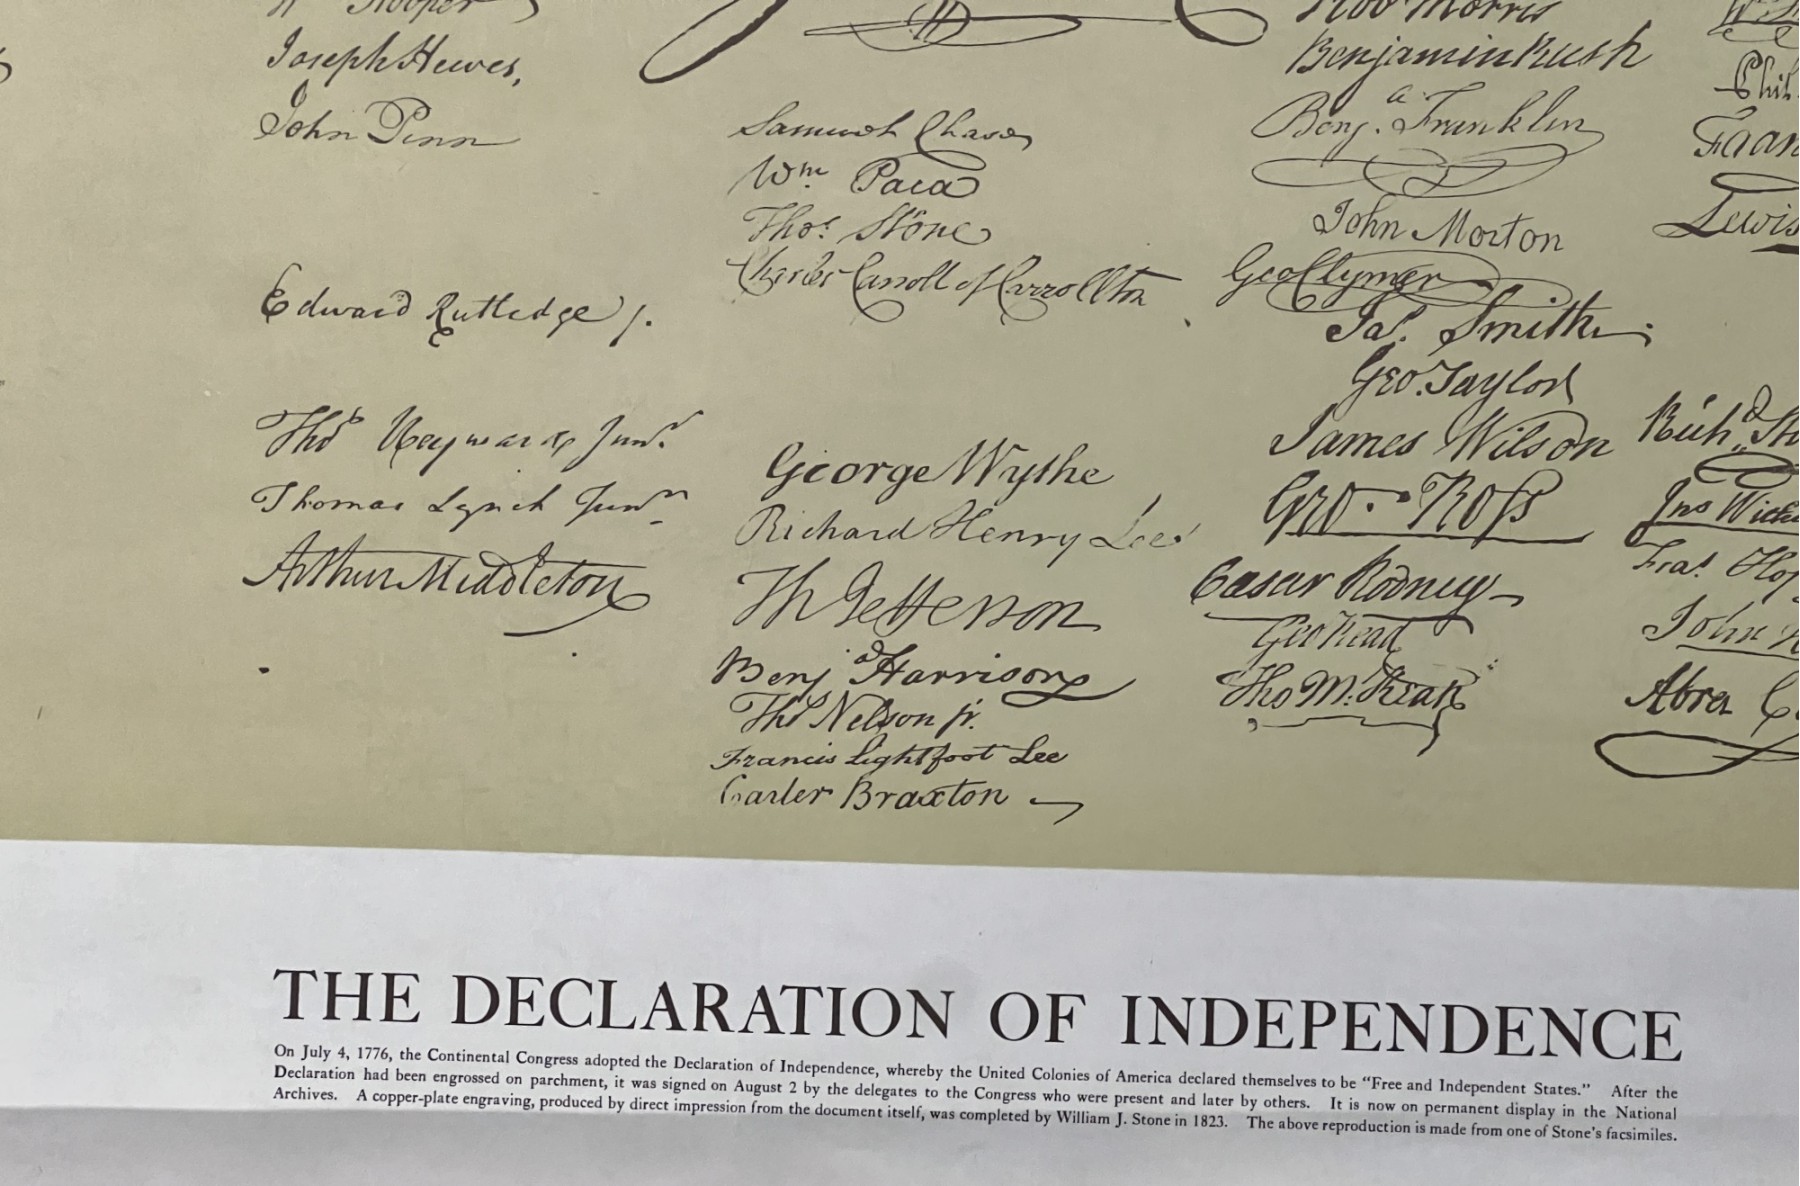 Hooper
Joseph Hewes,
John Penn
Edward Rutledge /.
Thos Heyward Junr.
Thomas Lynch Junr.
Arthur Middleton
Samuel Chase
Wm. Paca
Thos. Stone
Charles Carroll of Carrollton
George Wythe
Richard Henry Lee
Th Jefferson
Benj Harrison
Thos Nelson jr.
Francis Lightfoot Lee
Carter Braxton
Robt Morris
Benjamin Rush
Benja. Franklin
John Morton
Geo Clymer
Jas. Smith
Geo. Taylor
James Wilson
Geo. Ross
Caesar Rodney
Geo Read
Tho M. Kean
Phil.
Lewis
Richd.
Jno
Fras.
John
Abra
THE DECLARATION OF INDEPENDENCE
On July 4, 1776, the Continental Congress adopted the Declaration of Independence, whereby the United Colonies of America declared themselves to be "Free and Independent States." After the
Declaration had been engrossed on parchment, it was signed on August 2 by the delegates to the Congress who were present and later by others. It is now on permanent display in the National
Archives. A copper-plate engraving, produced by direct impression from the document itself, was completed by William J. Stone in 1823. The above reproduction is made from one of Stone's facsimiles.